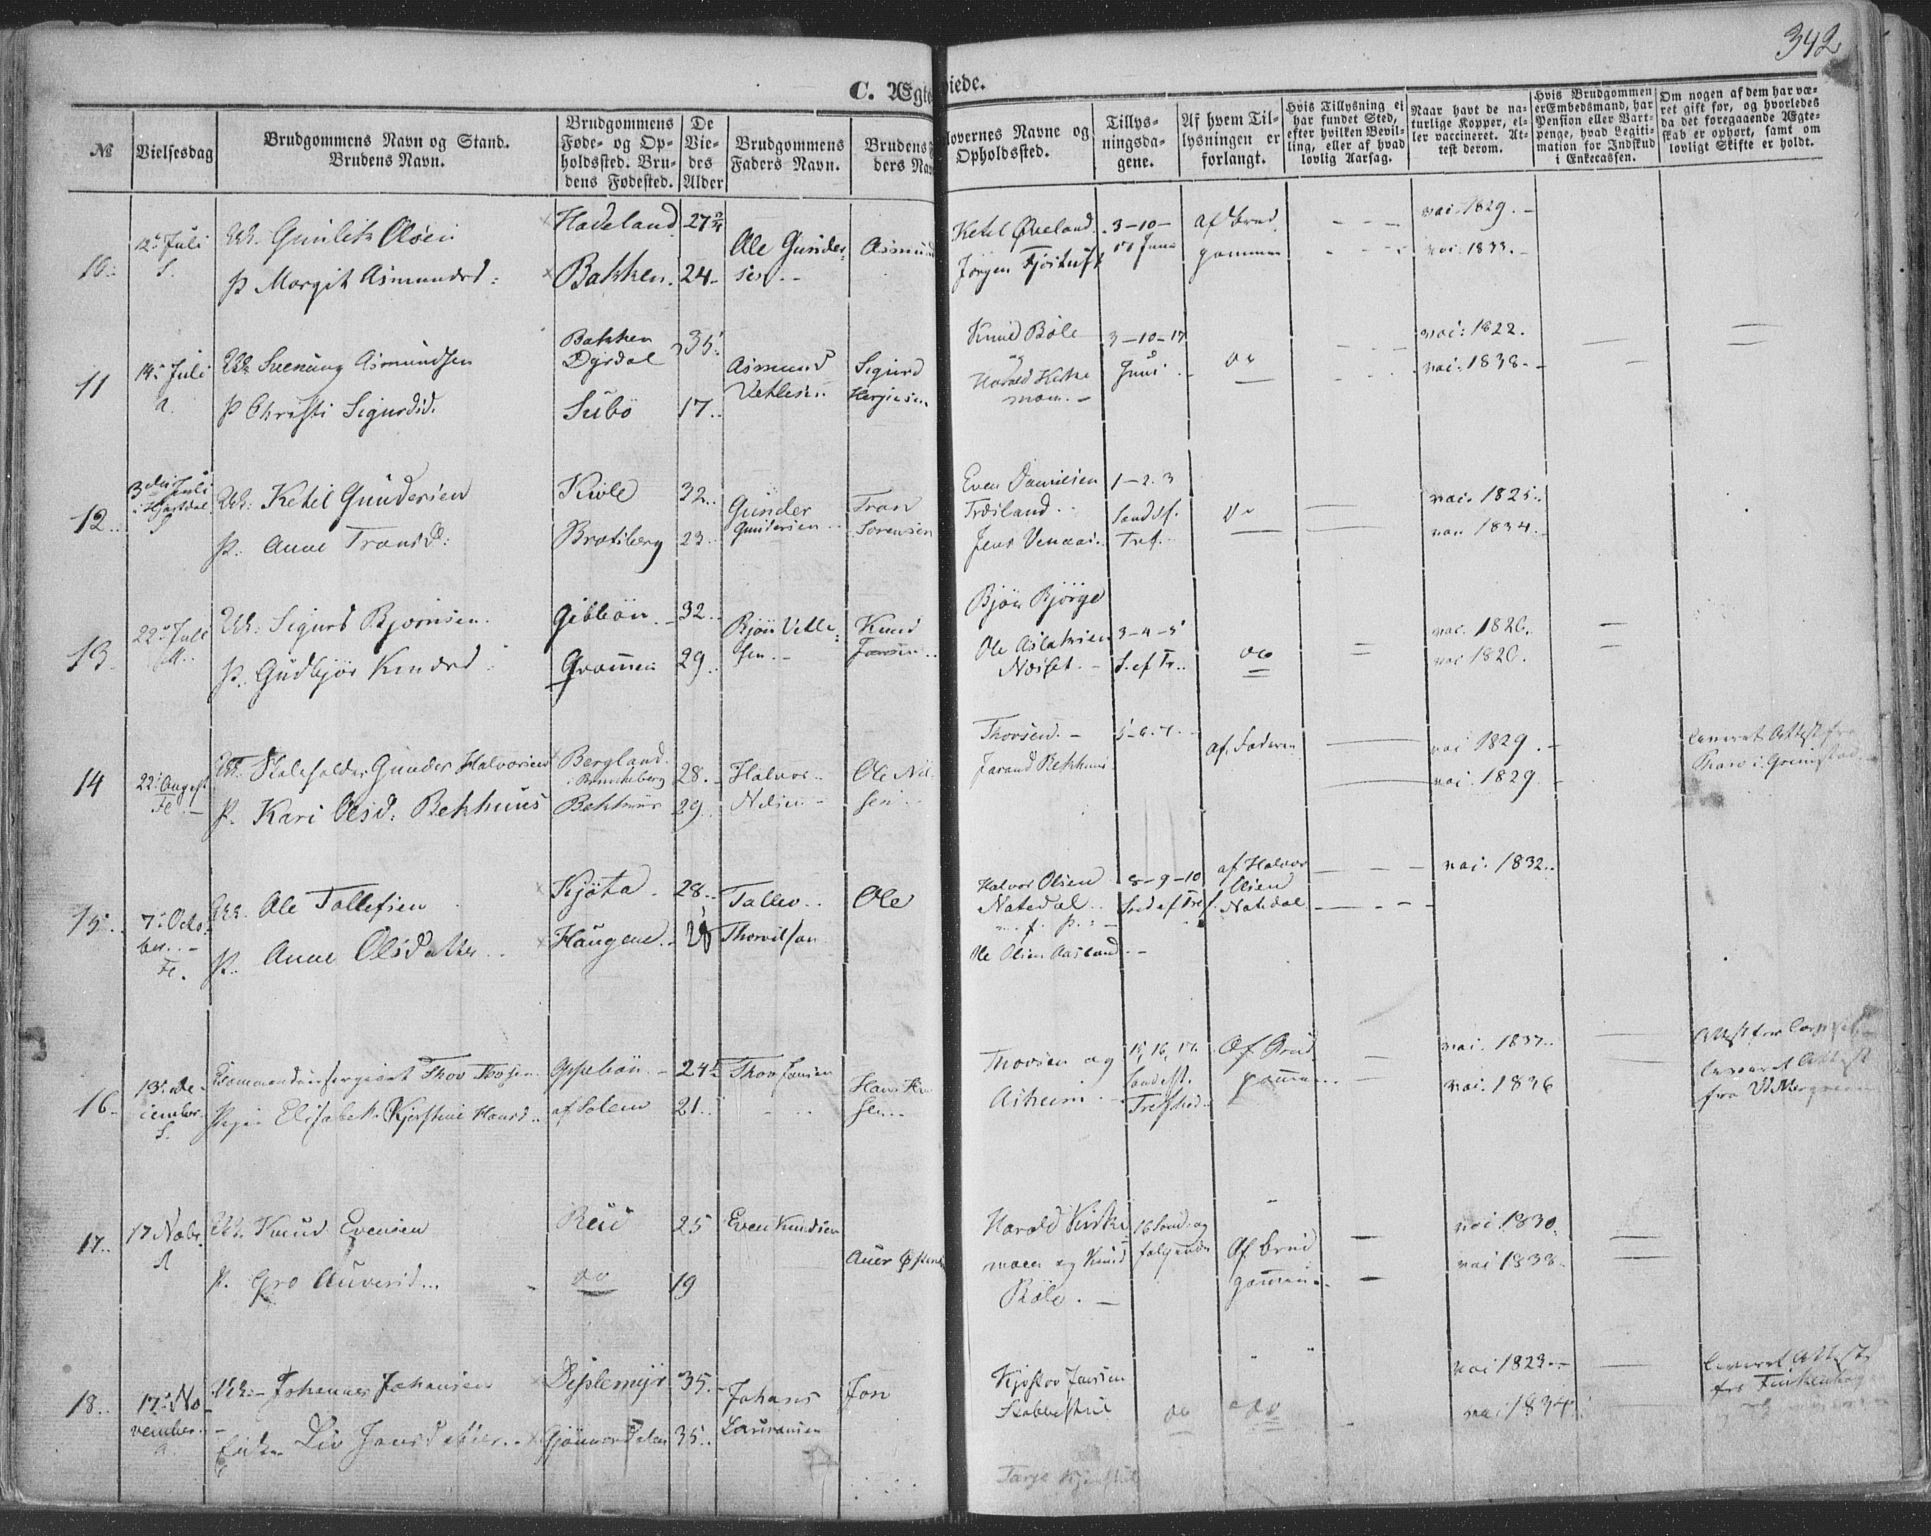 342
C. Ægte
viede.
№
Vielsesdag
Brudgommens Navn og Stand.
Brudens Navn.
Brudgommens
Føde- og Op-
holdssted. Bru-
dens Fødested.
De
Vie-
des
Alder
Brudgommens
Faders Navn.
Brudens F
ders Nav
lovernes Navne og
Opholdssted.
Tillys-
ningsda-
gene.
Af hvem Til-
lysningen er
forlangt.
Hvis Tillysning ei
har fundet Sted,
efter hvilken Bevil-
ling, eller af hvad
lovlig Aarsag.
Naar havt de na-
turlige Kopper, el-
ler vaccineret. At-
test derom.
Hvis Brudgommen
er Embedsmand, har
Pension eller Vart-
penge, hvad Legiti-
mation for Indskud
i Enkecassen.
Om nogen af dem har væ-
ret gift før, og hvorledes
da det foregaaende Ægte-
skab er ophørt, samt om
lovligt Skifte er holdt.
10.
12 Juli
S.
Uk. Gunlik Olsen
P Margit Asmundsd:
Hadeland
Bakken.
27
24
Ole Gunder-
sen
Asmund
Ketel Øveland.
Jørgen
3-10-
17 Juni
af Brud
gommen
vai. 1829.
vai. 1833.
11
14 Juli
A.
Uk Svenung Asmundsen
P Christi Sigurdsd.
Bakken
Dyrdal
Subø
35
17.
Asmund
Vetlesen
Sigurd
Herjusen
Knud Bøle
og
Harald Kirke
moen.
3-10-17
Juni
do
vai: 1822.
vai. 1838.
12.
3die Juli
i Hjartdal
Uk: Ketil Gundersen
P. Anne Transd:
Kivle
Bratsberg
32.
23.
Gunder
Gundersen
Tran
Sørensen
Even Danielsen
Træiland.
Jens
1-2-3
Sondf.
Tref.
do
vai. 1825.
vai 1834.
13.
22 Juli
Uk: Sigurd Bjørnsen.
P. Gudbjør Knudsd
Gibbøn.
Grammen
32.
29.
Bjøn Vetle-
sen.
Knud
Bjøn Bjørge
Ole Aslaksen
Næsset.
3-4-5
S. ef Tr.
do
vai. 1820.
vai 1820.
14
22 August
Fl.
Uk. Skoleholder Gunder Halvorsen
P. Kari Olsd: Bekhuus
Bergland
Bekhuus
28.
29.
Halvor
Nilsen
Ole Nil-
sen
Thovsen.
Jarand Bekhuus
5-6-7.
af Faderen
vai 1829.
vai. 1829.
leveret Attest fra
i Grimstad
15.
7 Octo-
ber.
Fl.
Uk. Ole Tollefsen
P. Anne Olsdatter
Kjøta
Haugene.
28.
Tallev
Ole
Halvor Olsen
Natedal
f. P.
Ole Olsen Aasland
8-9-10
Sond ef Tref.
af Halvor
Olsen
Natedal.
vai. 1832.
16.
13 De-
cember
S.
Commandersergeant Thov Thovsen
Pige Elisabeth Kjerstine Hansd.
Oppebøen
af Solem
24
21.
Thov Jansen
Hans
sen
Thovsen og
Asheim
15, 16, 17.
Sondest.
Af Brud
gommen
vai. 1837.
vai. 1836
Attest fra
leveret Attest
fra
17.
17 Nobr.
A
Uk. Knud Evensen
P. Gro Auversd.
Reid
do
25
19
Even Knudsen
Auver Østen
Harald Kirke
moen og Knud
Bøle.
16 Sond. og
følgende
Af Brud
gommen.
vai. 1830.
vai 1838.
18.
17 No
vember.
A.
Uk: Johannes Johansen
Enke Liv Jonsdatter.
35.
35.
Johans
Lauransen
Jon
Kjøstov Jensen
Skabbestul
do
do
vai 1823.
vai 1834
leveret Attest
fra
Tarje